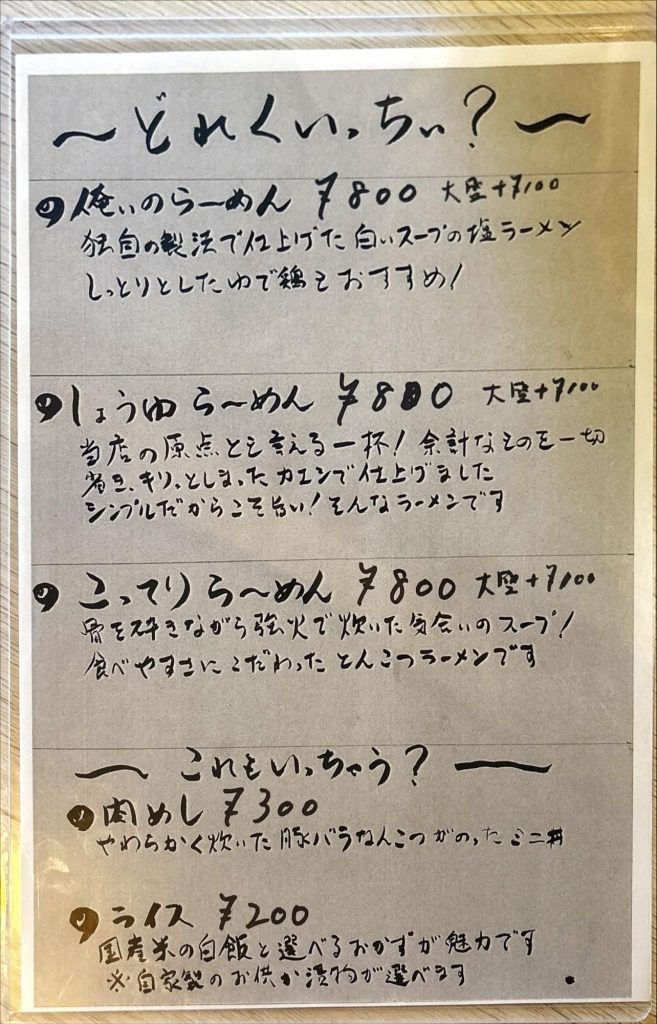 〜どれくいっちぃ？〜
俺いのらーめん ¥800 大盛+¥100
独自の製法で仕上げた白いスープの塩ラーメン
しっとりとしたゆで鶏もおすすめ！
しょうゆらーめん ¥800 大盛+¥100
当店の原点とも言える一杯！余計なものを一切
省き、きりっとしまったカエシで仕上げました
シンプルだからこそ旨い！そんなラーメンです
こってりらーめん ¥800 大盛+¥100
骨を砕きながら強火で炊いた気合いのスープ！
食べやすさにこだわったとんこつラーメンです
〜これもいっちゃう？〜
肉めし ¥300
やわらかく炊いた豚バラなんこつがのったミニ丼
ライス ¥200
国産米の白飯と選べるおかずが魅力です
※自家製のお供か漬物が選べます